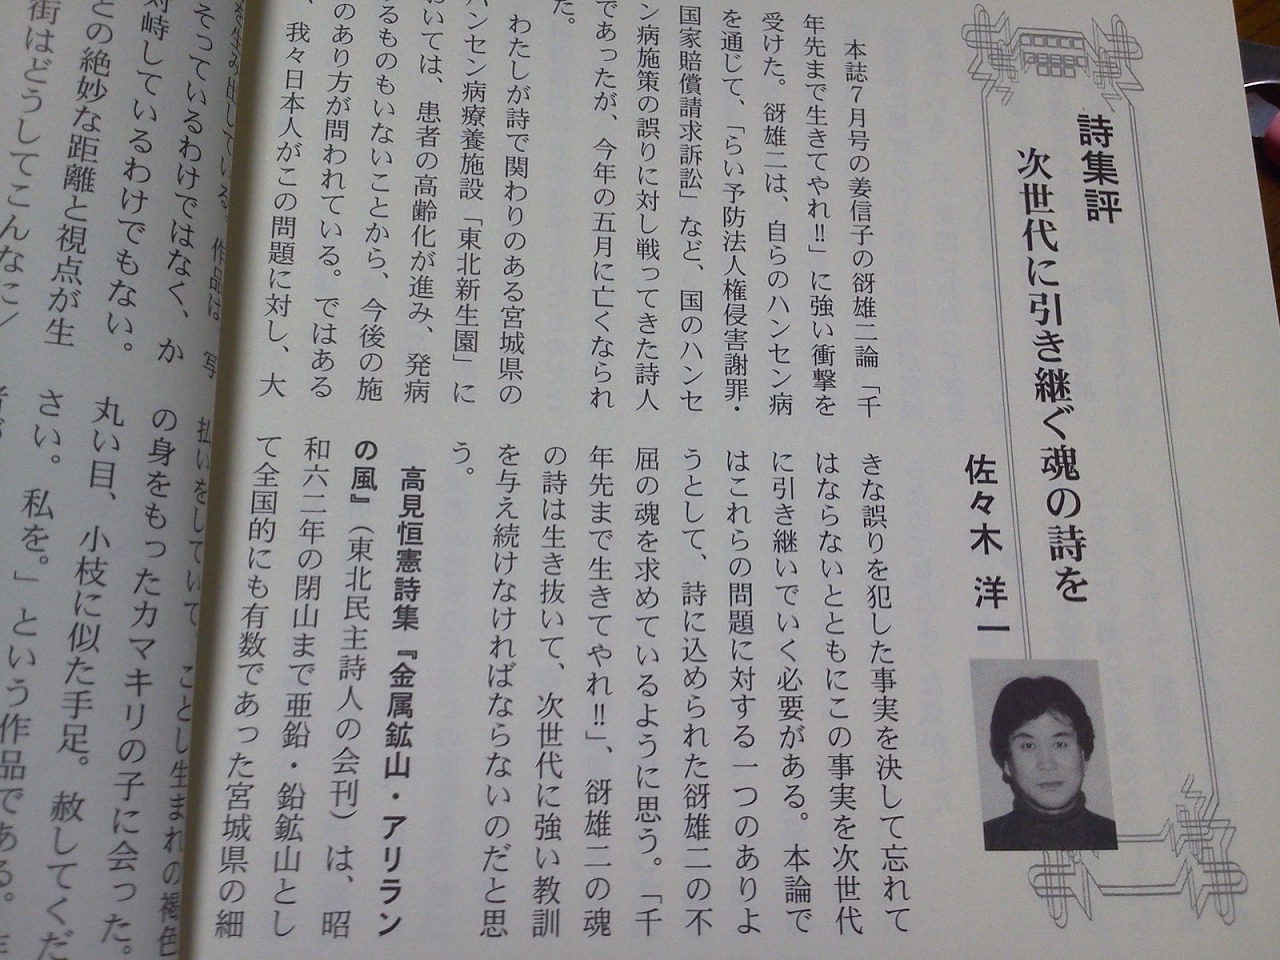 詩集評
次世代に引き継ぐ魂の詩を
佐々木 洋一
本誌7月号の姜信子の谺雄二論「千
年先まで生きてやれ!!」に強い衝撃を
受けた。谺雄二は、自らのハンセン病
を通じて、「らい予防法人権侵害謝罪・
国家賠償請求訴訟」など、国のハンセ
ン病施策の誤りに対し戦ってきた詩人
であったが、今年の五月に亡くなられ
た。
わたしが詩で関わりのある宮城県の
ハンセン病療養施設「東北新生園」に
おいては、患者の高齢化が進み、発病
するものもいないことから、今後の施
のあり方が問われている。ではある
、我々日本人がこの問題に対し、大
きな誤りを犯した事実を決して忘れて
はならないとともにこの事実を次世代
に引き継いでいく必要がある。本論で
はこれらの問題に対する一つのありよ
うとして、詩に込められた谺雄二の不
屈の魂を求めているように思う。「千
年先まで生きてやれ!!」、谺雄二の魂
の詩は生き抜いて、次世代に強い教訓
を与え続けなければならないのだと思
う。
高見恒憲詩集『金属鉱山・アリラン
の風』（東北民主詩人の会刊）は、昭
和六二年の閉山まで亜鉛・鉛鉱山とし
て全国的にも有数であった宮城県の細
を生み出している。作品は、写
そっているわけではなく、か
対峙しているわけでもない。
との絶妙な距離と視点が生
街はどうしてこんなに／
払いをしていて、ことし生まれの褐色
の身をもったカマキリの子に会った。
丸い目、小枝に似た手足。赦してくだ
さい。私を。」という作品である。